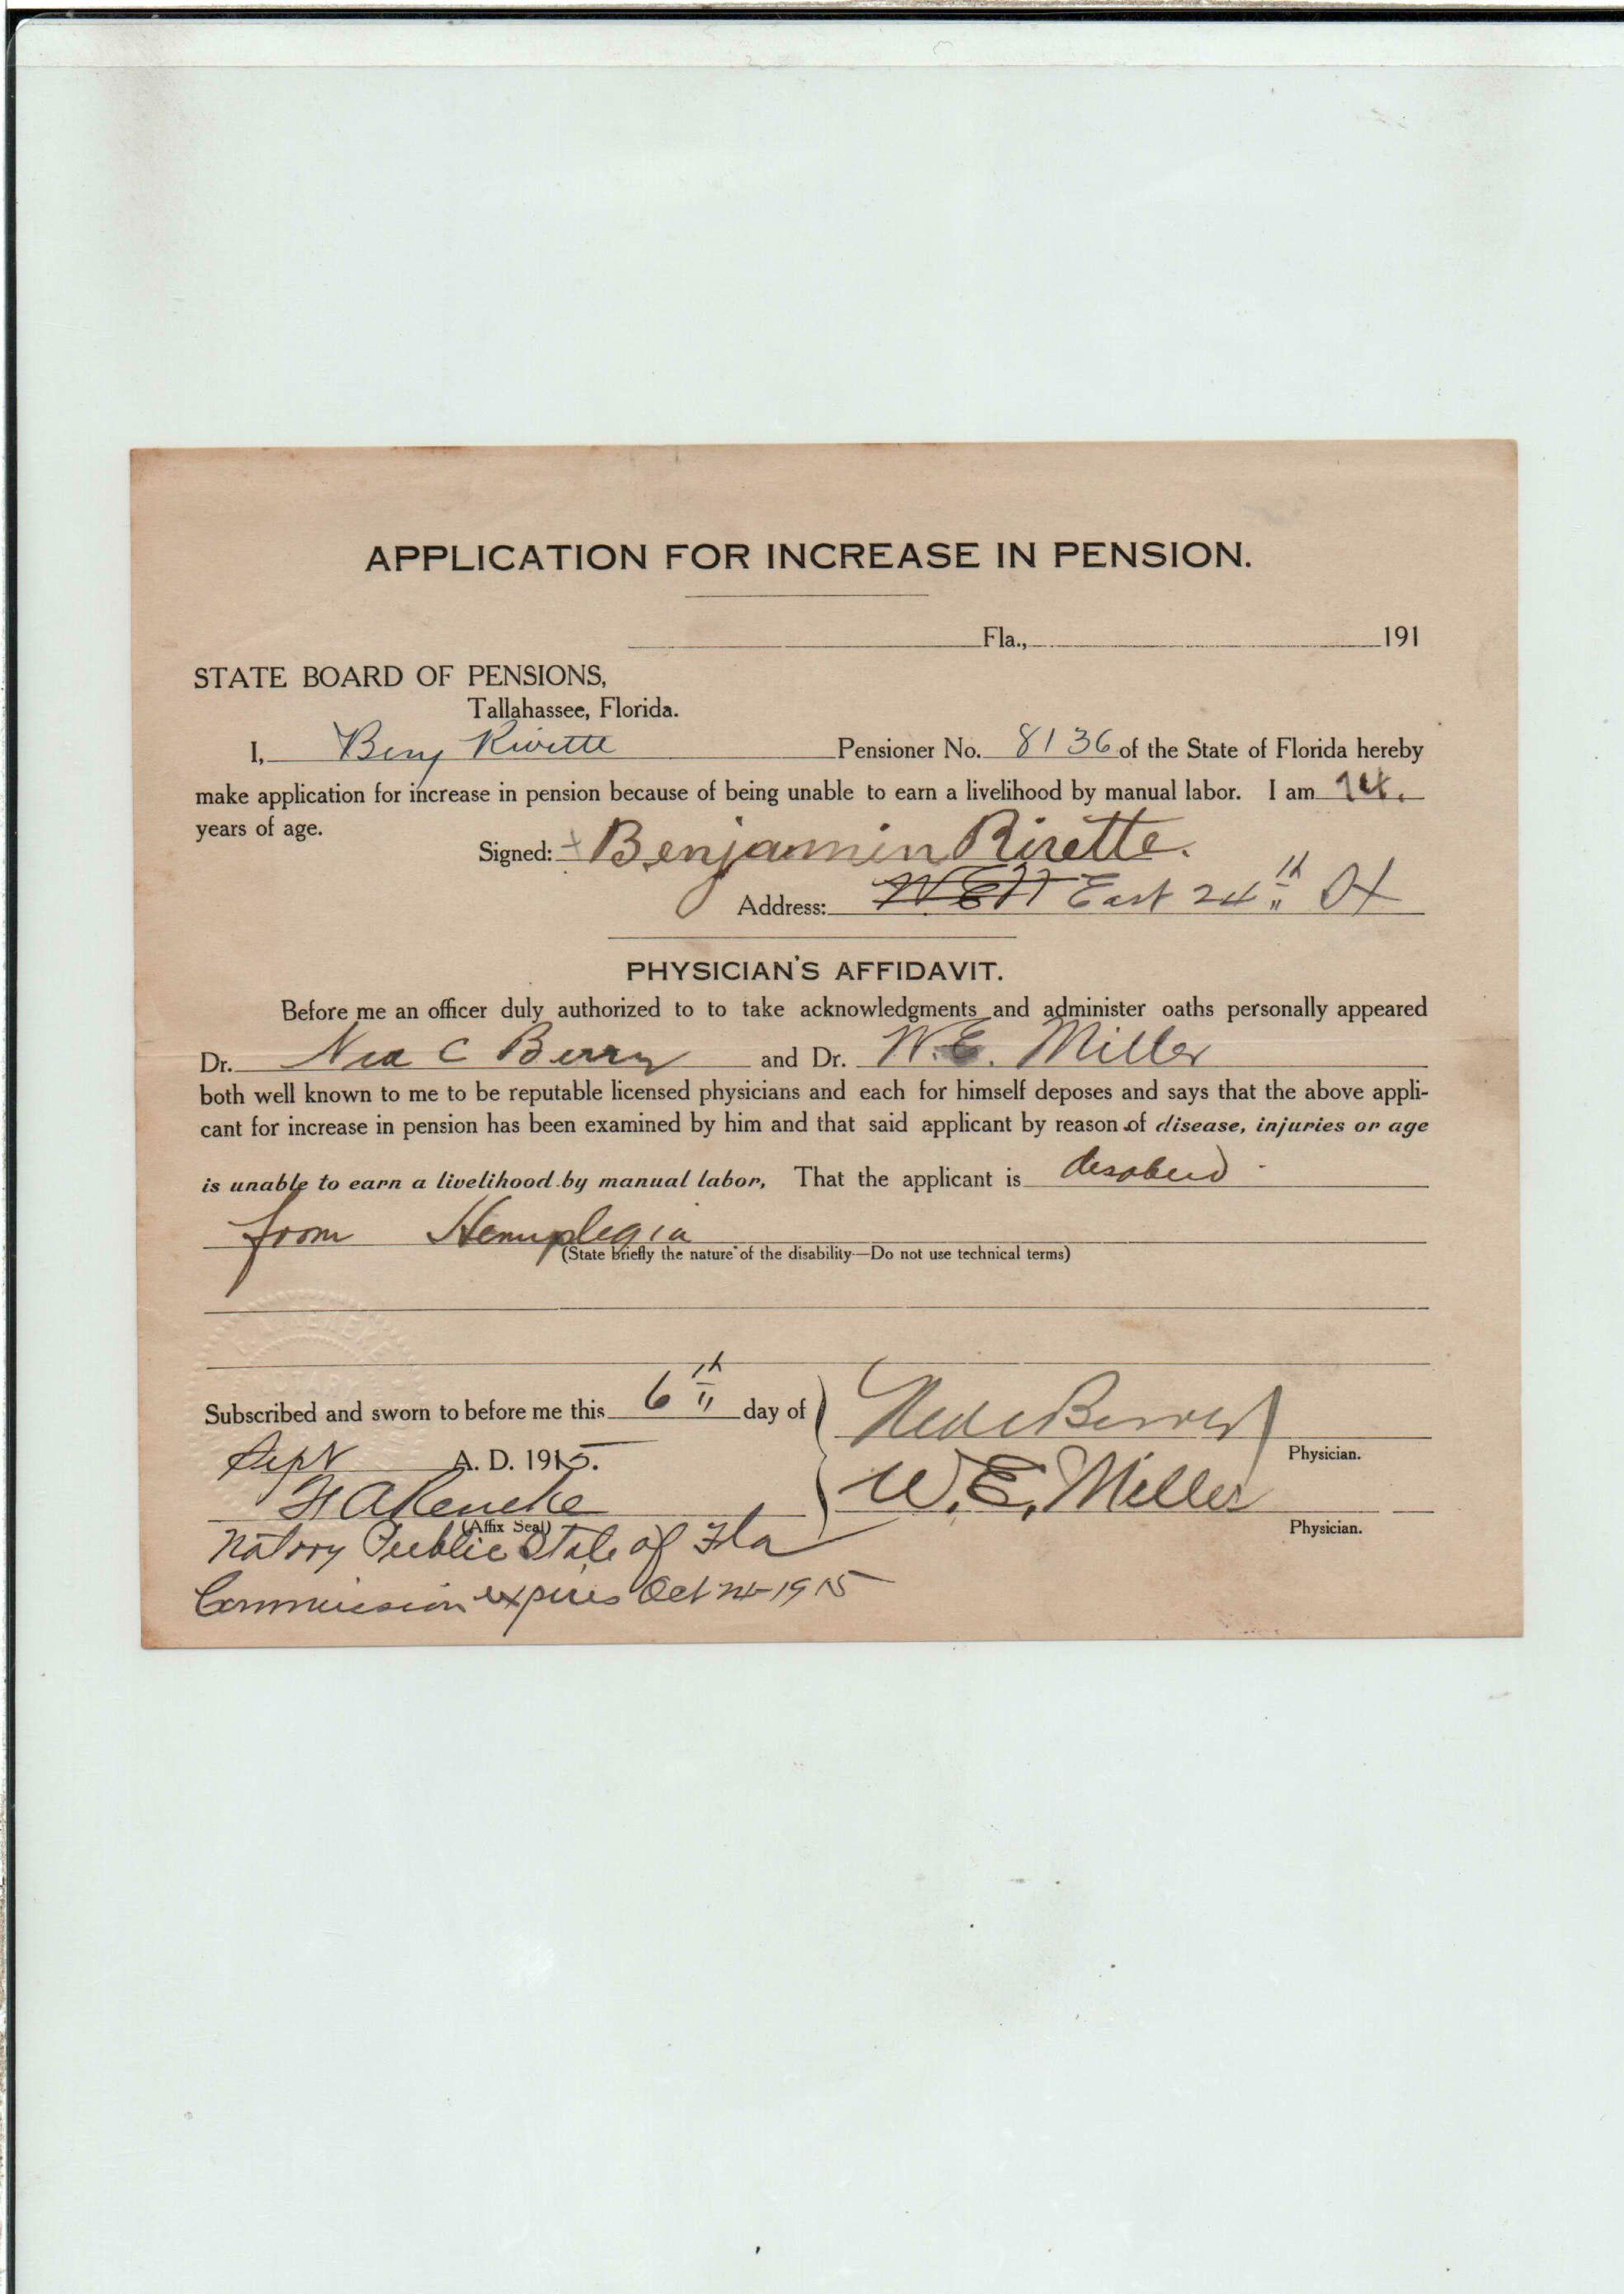 APPLICATION FOR INCREASE IN PENSION.
Fla., 191
STATE BOARD OF PENSIONS,
Tallahassee, Florida.
I, Benj Rivette Pensioner No. 8136 of the State of Florida hereby
make application for increase in pension because of being unable to earn a livelihood by manual labor. I am 74.
years of age.
Signed: Benjamin Rivette.
Address: East 24th St
PHYSICIAN'S AFFIDAVIT.
Before me an officer duly authorized to to take acknowledgments and administer oaths personally appeared
Dr. C Berry and Dr. W. E. Miller
both well known to me to be reputable licensed physicians and each for himself deposes and says that the above appli-
cant for increase in pension has been examined by him and that said applicant by reason of disease, injuries or age
is unable to earn a livelihood by manual labor, That the applicant is
from Hemiplegia
(State briefly the nature of the disability—Do not use technical terms)
Subscribed and sworn to before me this 6th day of
Sept A. D. 1915.
Physician.
W. E. Miller
(Affix Seal)
Physician.
Notary Public State of Fla
Commission expires Oct 1915